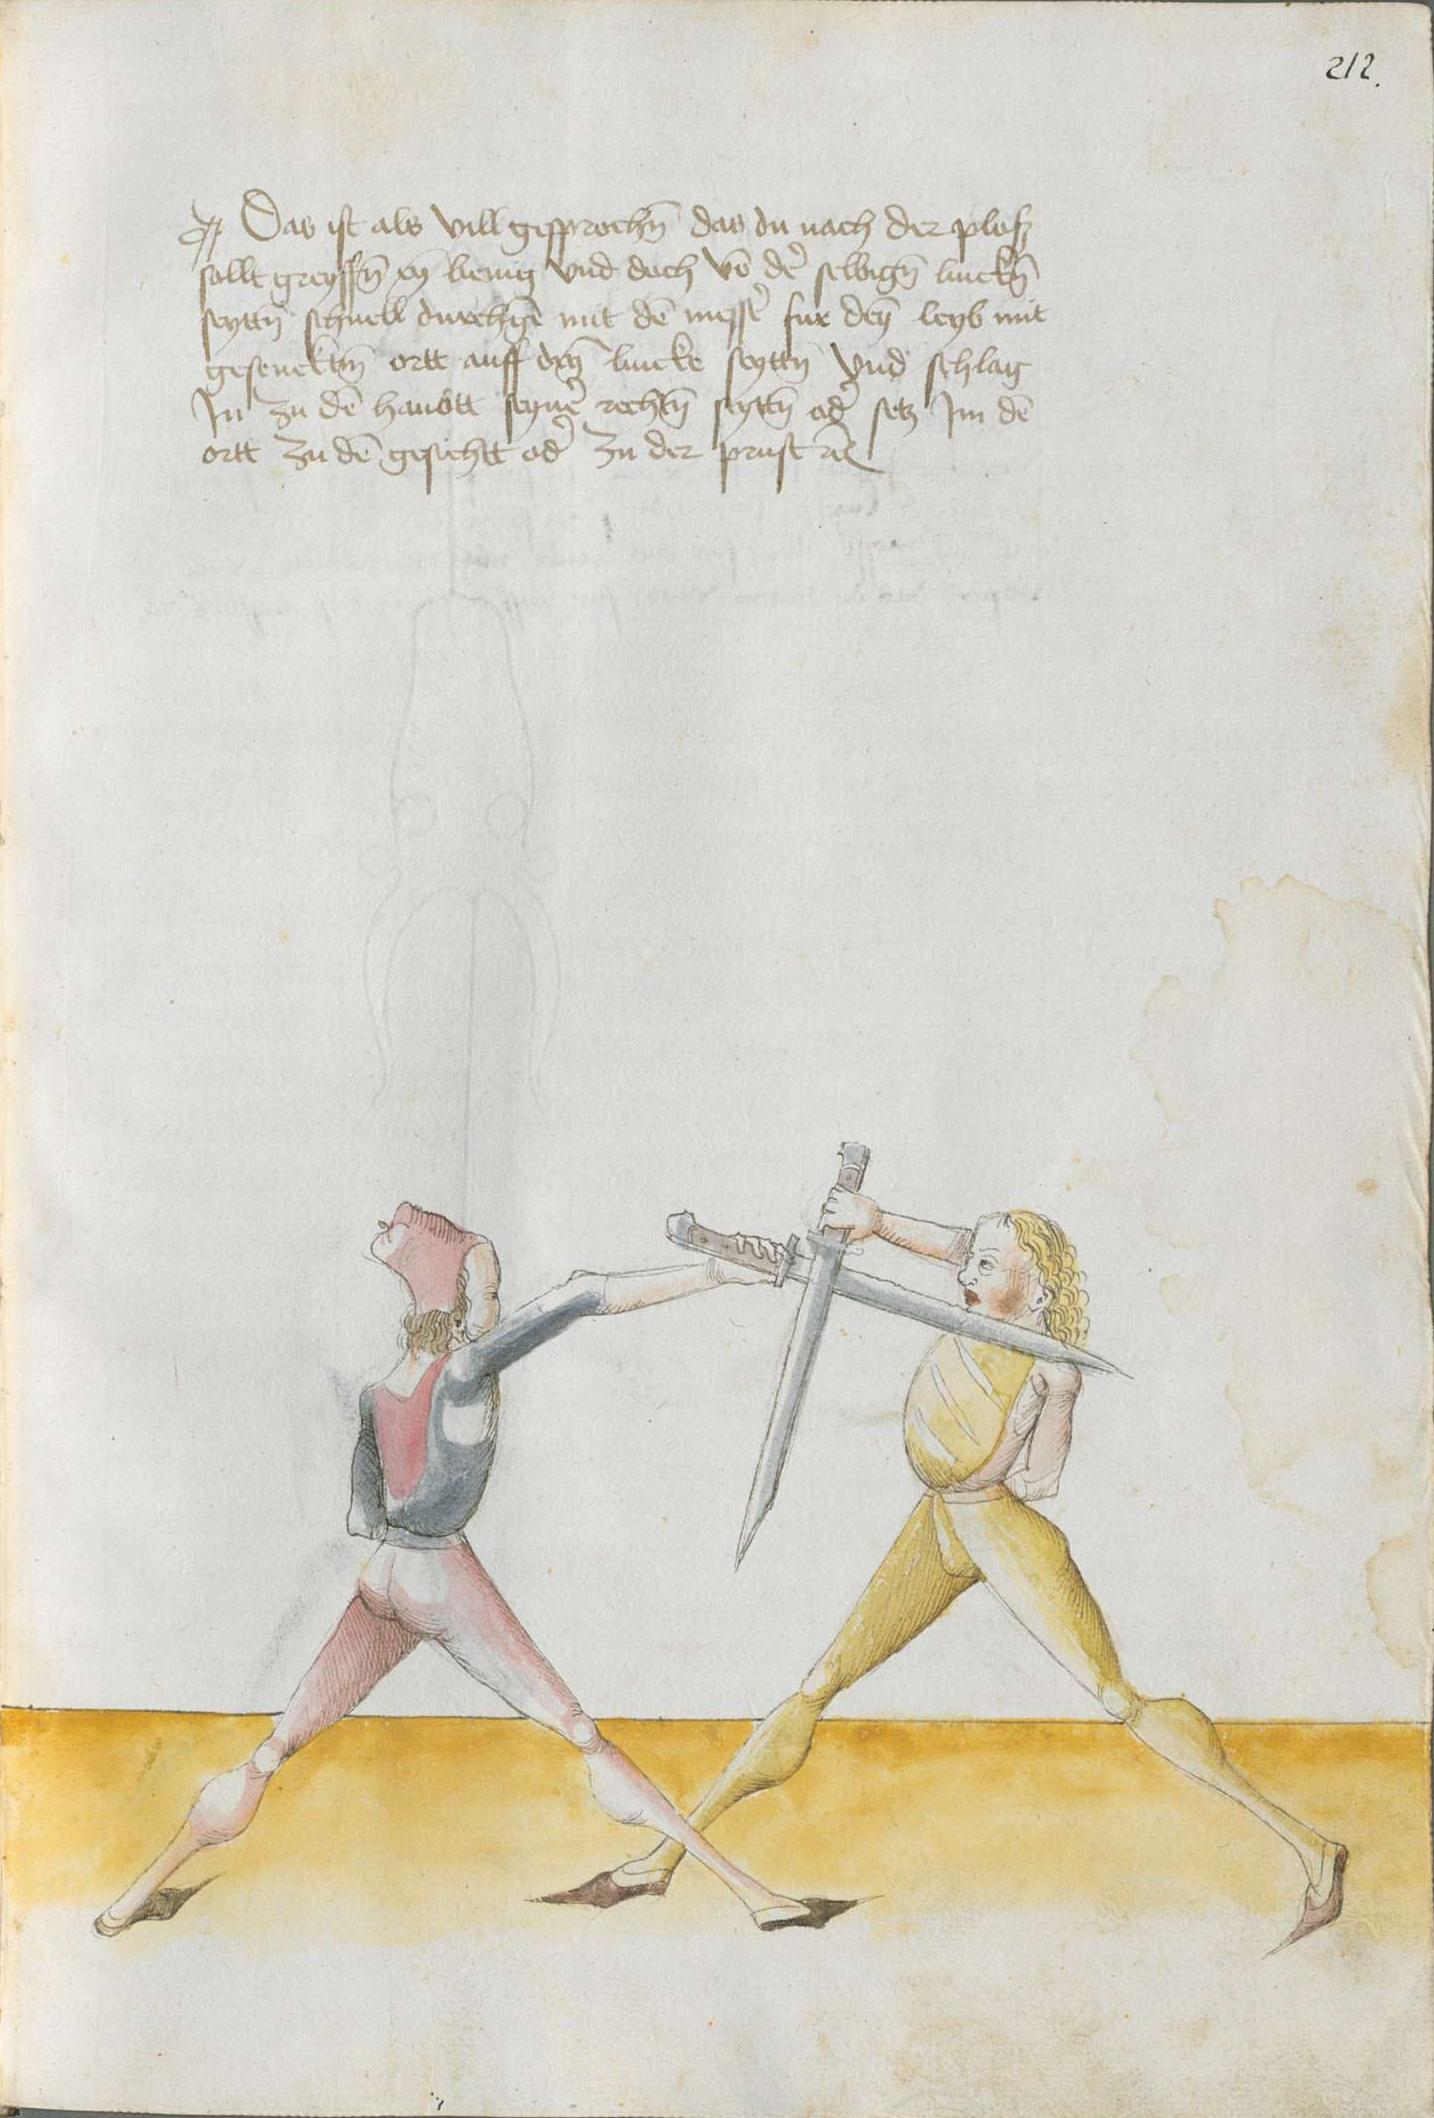 212.
Das ist als vill gesprochn̄ das du nach der ploß
sollt greyffn̄ eӯ benig vnd doch vō dē selbign̄ linckn̄
seyttn̄ schnell durchgē mit dē messer fur deӯ leyb mit
gesencktn̄ ortt auff deӯ lincke seyttn̄ vnd schlag
In zu dē haubtt seyner rechtn̄ seyttn̄ oder setz Im dē
ortt zu dē gesichtt oder zu der prust